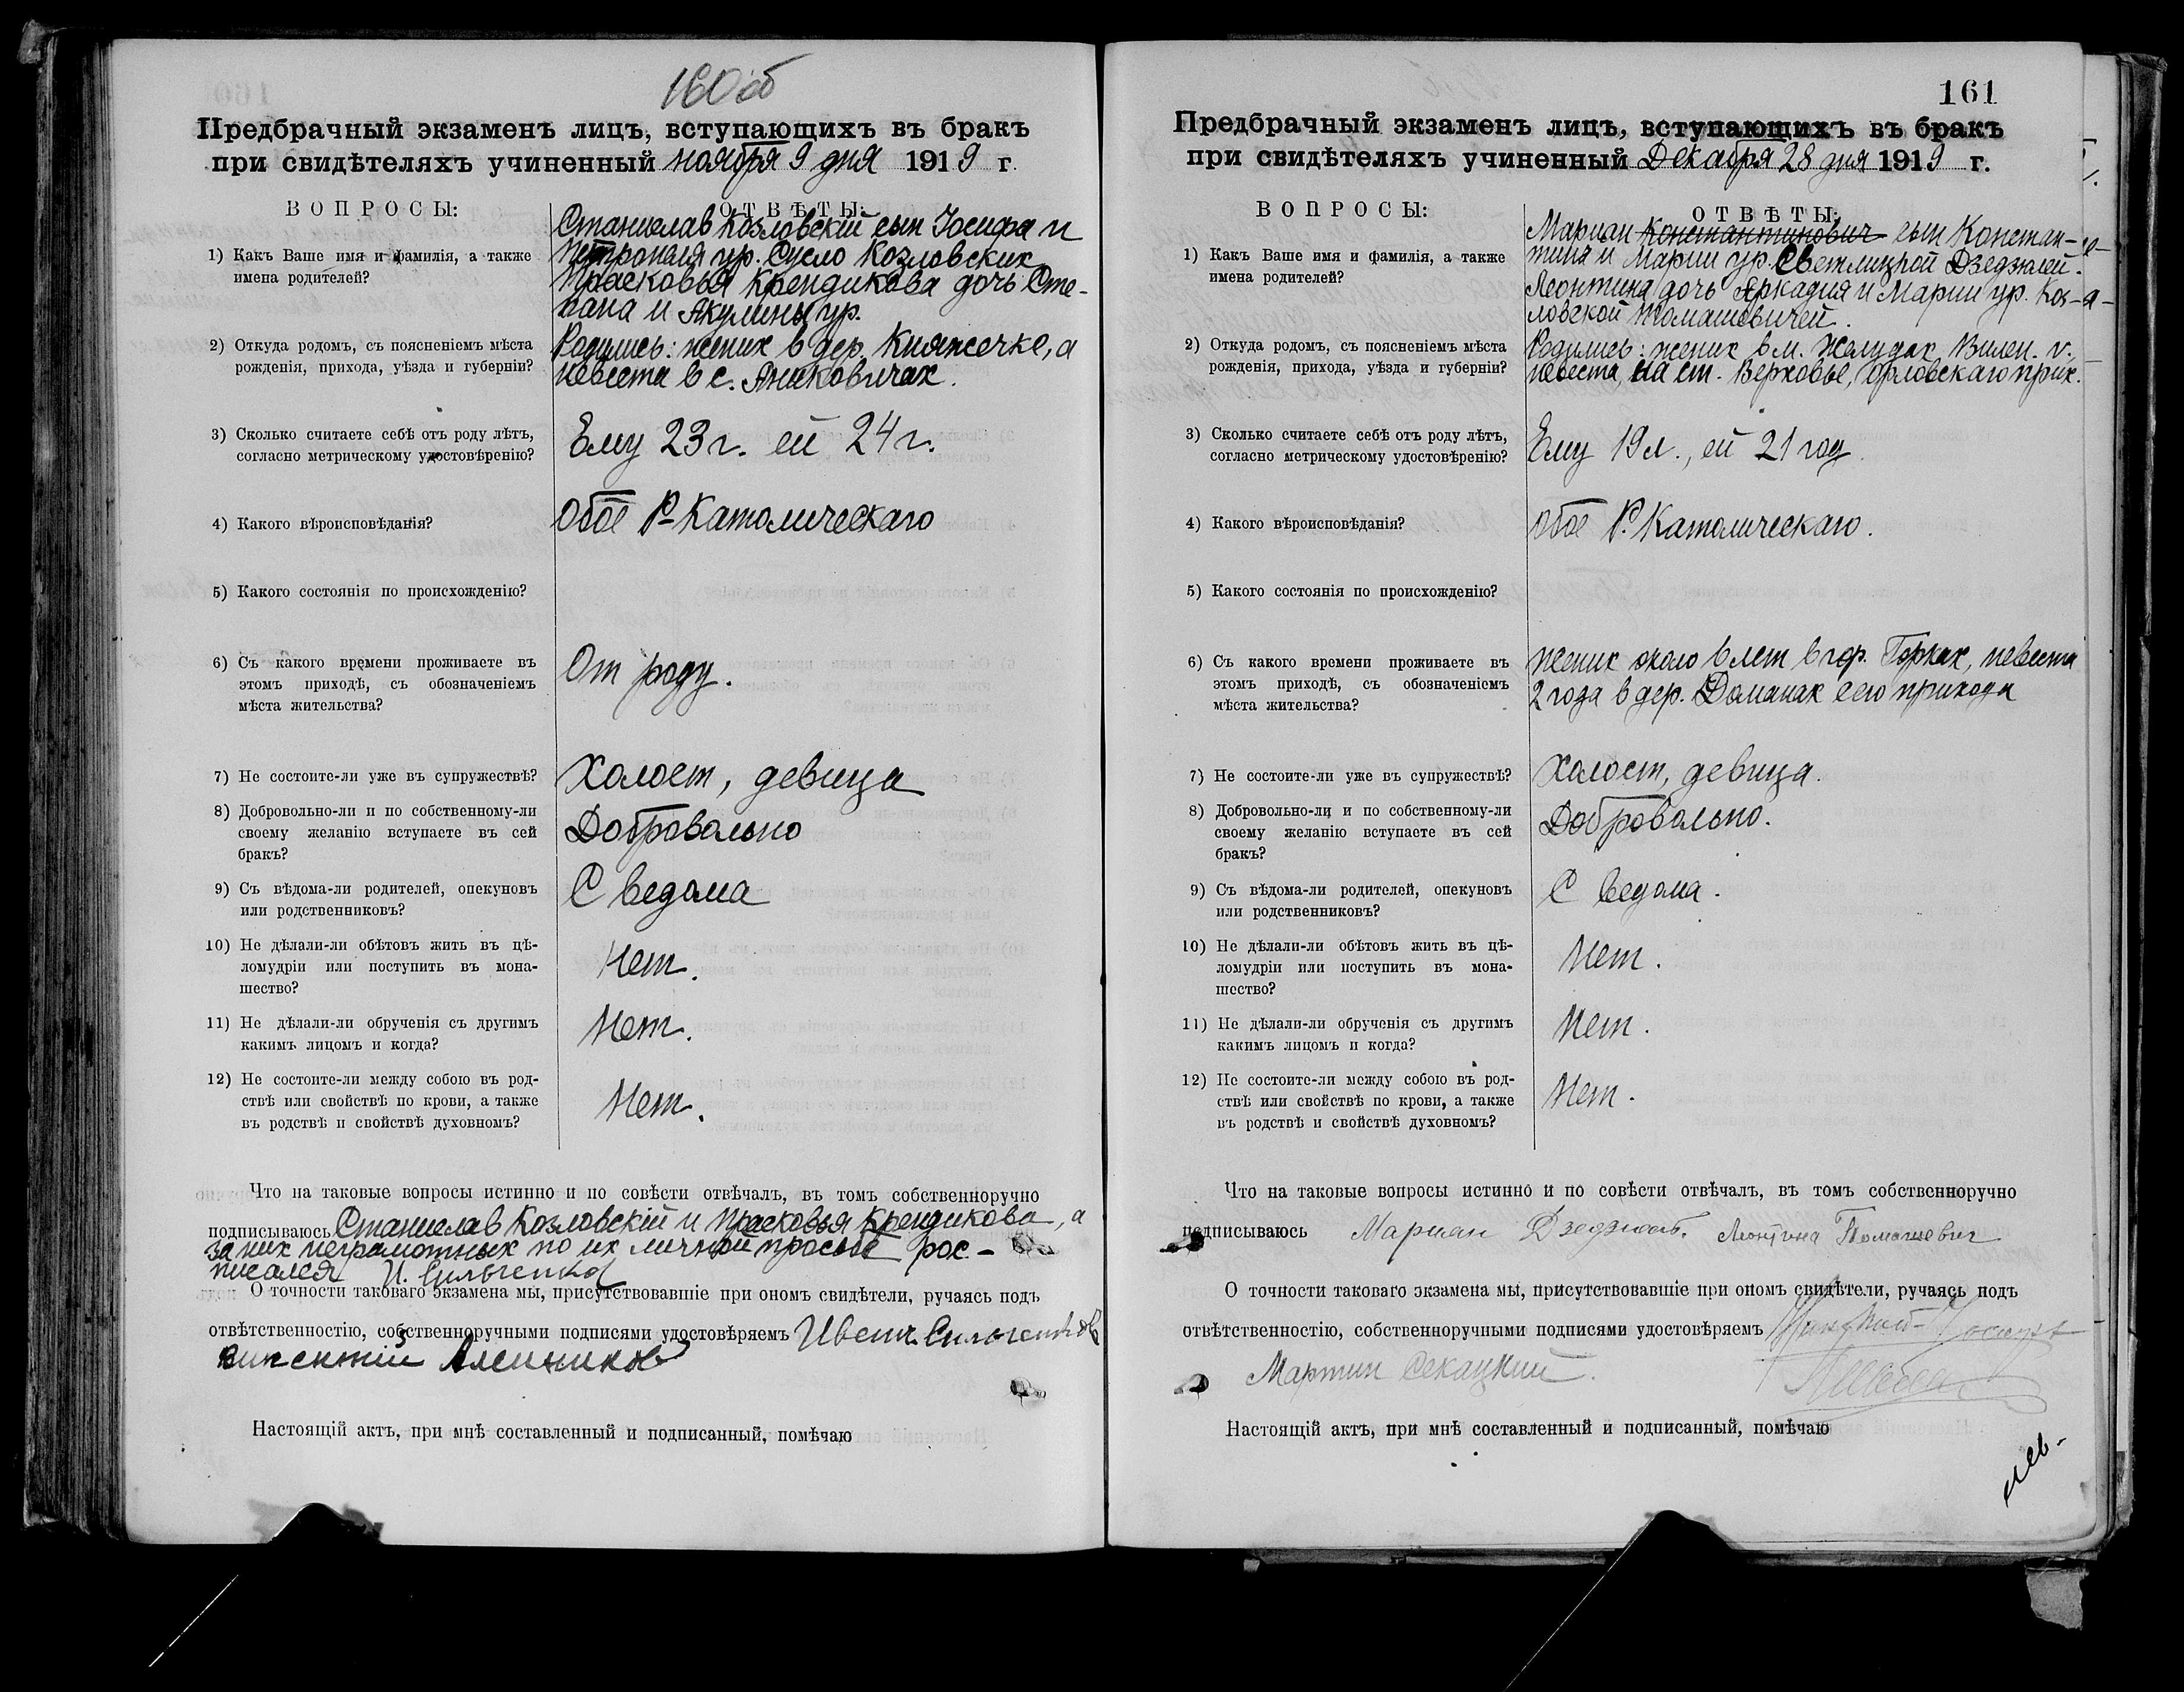 160 об
Предбрачный экзаменъ лицъ, вступающихъ въ бракъ
при свидѣтеляхъ учиненный ноября 9 дня 1919 г.
ВОПРОСЫ:
ОТВѢТЫ:
1) Какъ Ваше имя и фамилія, а также
имена родителей?
Станислав Козловскій сын Іосифа и
Петронеля ур. Сусло Козловских
Прасковья Крендикова дочь Сте-
пана и Акулины ур.
2) Откуда родомъ, съ поясненіемъ мѣста
рожденія, прихода, уѣзда и губерніи?
Родились: жених в дер. Княжечке, а
невеста в с. Аниковичах.
3) Сколько считаете себѣ отъ роду лѣтъ,
согласно метрическому удостовѣренію?
Ему 23 г. ей 24 г.
4) Какого вѣроисповѣданія?
Обое Р-Католическаго
5) Какого состоянія по происхожденію?
6) Съ какого времени проживаете въ
этомъ приходѣ, съ обозначеніемъ
мѣста жительства?
От роду.
7) Не состоите-ли уже въ супружествѣ?
Холост, девица
8) Добровольно-ли и по собственному-ли
своему желанію вступаете въ сей
бракъ?
Добровольно
9) Съ вѣдома-ли родителей, опекуновъ
или родственниковъ?
С ведома
10) Не дѣлали-ли обѣтовъ жить въ цѣ-
ломудріи или поступить въ мона-
шество?
Нет.
11) Не дѣлали-ли обрученія съ другимъ
какимъ лицомъ и когда?
Нет.
12) Не состоите-ли между собою въ род-
ствѣ или свойствѣ по крови, а также
въ родствѣ и свойствѣ духовномъ?
Нет.
Что на таковые вопросы истинно и по совѣсти отвѣчалъ, въ томъ собственноручно
подписываюсь Станислав Козловскій и Прасковья Крендикова, а
за них неграмотных по их личной просьбе рос-
писался И. Сильченков
О точности таковаго экзамена мы, присутствовавшіе при ономъ свидѣтели, ручаясь подъ
отвѣтственностію, собственноручными подписями удостовѣряемъ Сильченков
Викентий Алейников
Настоящій актъ, при мнѣ составленный и подписанный, помѣчаю
161
Предбрачный экзаменъ лицъ, вступающихъ въ бракъ
при свидѣтеляхъ учиненный Декабря 28 дня 1919 г.
ВОПРОСЫ:
ОТВѢТЫ:
1) Какъ Ваше имя и фамилія, а также
имена родителей?
Мариан Константинович сын Констан-
тина и Марии ур. Светлицкой Дзедзюлей.
Леонтина дочь Аркадия и Марии ур. Коз-
ловской Томашевичей.
2) Откуда родомъ, съ поясненіемъ мѣста
рожденія, прихода, уѣзда и губерніи?
Родились: жених в м. Желудах Вилен. г.,
невеста, на ст. Верховье, Орловскаго прих.
3) Сколько считаете себѣ отъ роду лѣтъ,
согласно метрическому удостовѣренію?
Ему 19 л., ей 21 год.
4) Какого вѣроисповѣданія?
Обое Р. Католическаго.
5) Какого состоянія по происхожденію?
6) Съ какого времени проживаете въ
этомъ приходѣ, съ обозначеніемъ
мѣста жительства?
Жених около 6 лет в гор. Горках, невеста
2 года в дер. Доманах сего прихода
7) Не состоите-ли уже въ супружествѣ?
Холост, девица.
8) Добровольно-ли и по собственному-ли
своему желанію вступаете въ сей
бракъ?
Добровольно.
9) Съ вѣдома-ли родителей, опекуновъ
или родственниковъ?
С ведома.
10) Не дѣлали-ли обѣтовъ жить въ цѣ-
ломудріи или поступить въ мона-
шество?
Нет.
11) Не дѣлали-ли обрученія съ другимъ
какимъ лицомъ и когда?
Нет.
12) Не состоите-ли между собою въ род-
ствѣ или свойствѣ по крови, а также
въ родствѣ и свойствѣ духовномъ?
Нет.
Что на таковые вопросы истинно и по совѣсти отвѣчалъ, въ томъ собственноручно
подписываюсь Мариан Дзедзюль. Леонтина Томашевич
О точности таковаго экзамена мы, присутствовавшіе при ономъ свидѣтели, ручаясь подъ
отвѣтственностію, собственноручными подписями удостовѣряемъ
Мартин Секацкий.
Настоящій актъ, при мнѣ составленный и подписанный, помѣчаю